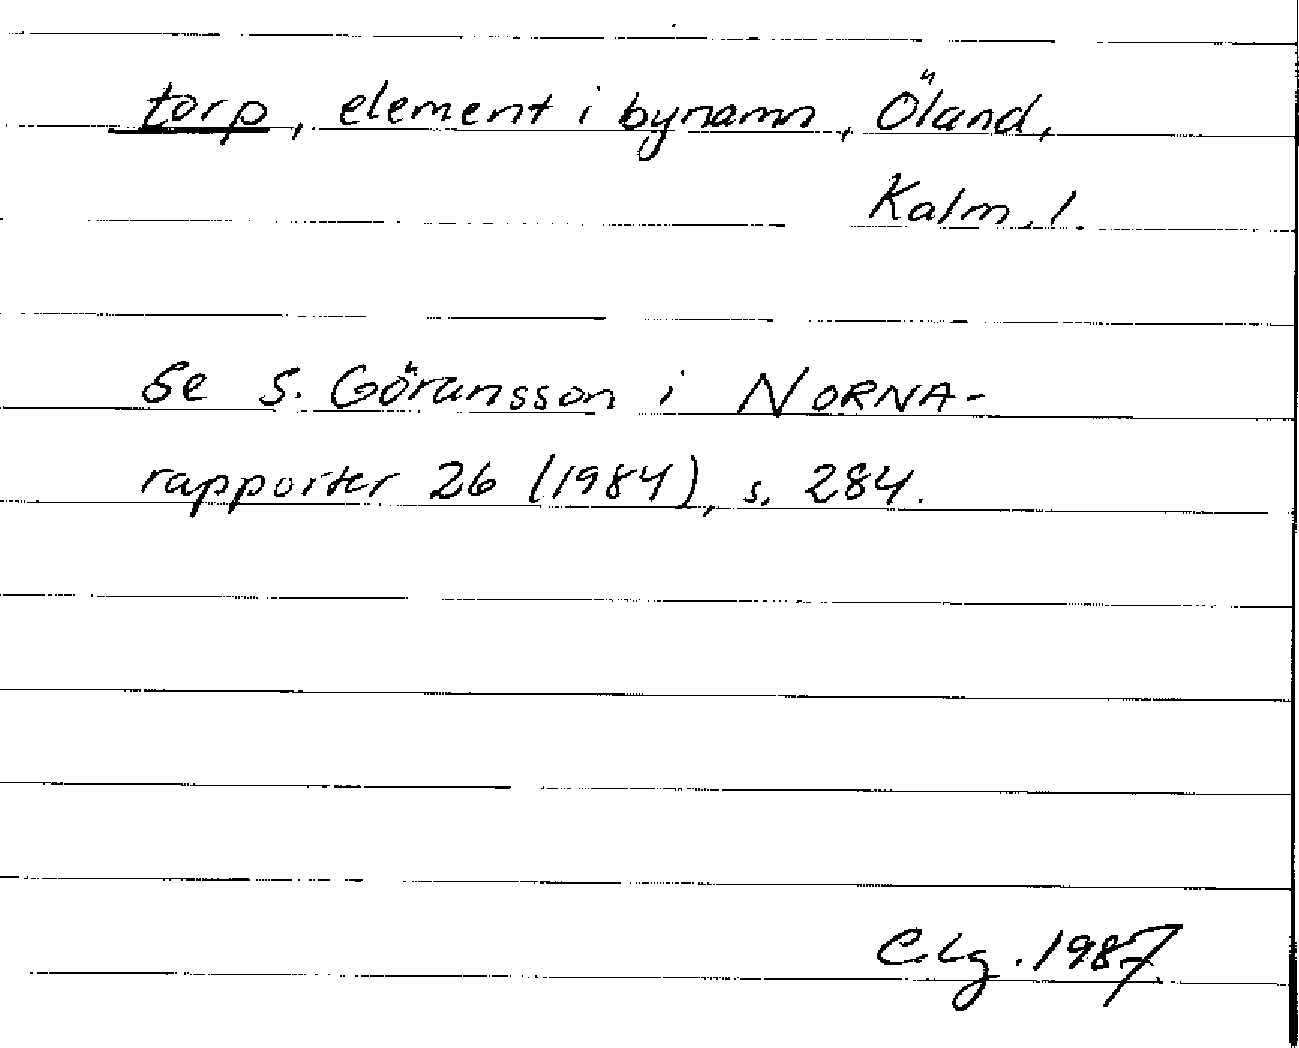 torp, element i bynamn, Öland,
Kalm. l.
Se S. Göransson i NORNA-
rapporter 26 (1984), s. 284.
CLg. 1987